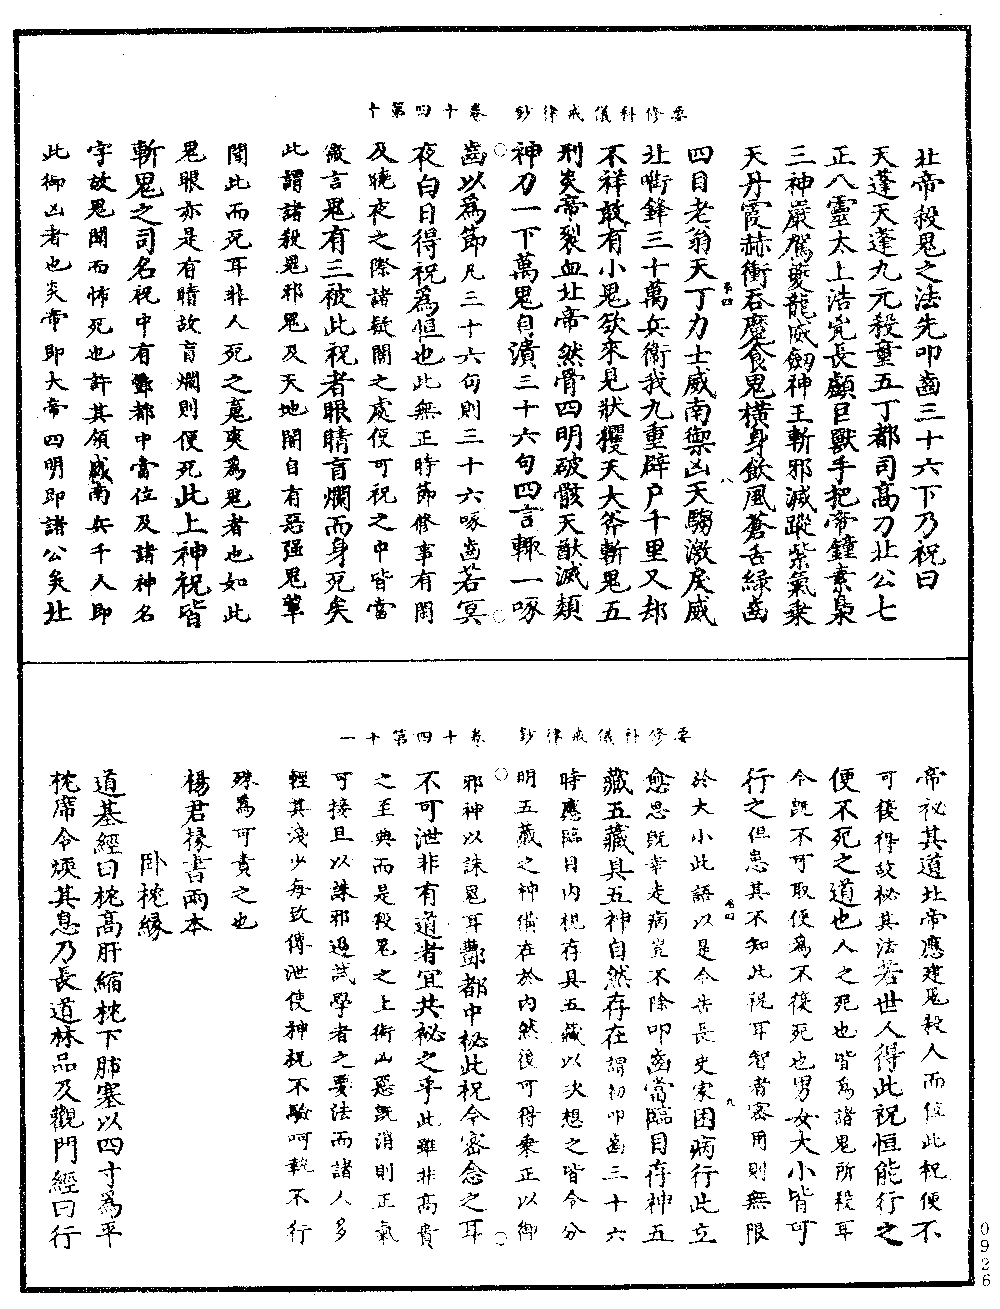 要修科儀戒律鈔　卷十四第十
北帝殺鬼之法先叩齒三十六下乃祝曰
天蓬天蓬九元殺童五丁都司高刀北公七
正八靈太上浩兇長顱巨獸手把帝鐘素梟
三神嚴駕夔龍威劒神王斬邪滅蹤紫氣乘
天丹霞赫衝吞魔食鬼橫身飲風蒼舌緑齒
四目老翁天丁力士威南禦凶天騶激戾威
北銜鋒三十萬兵衛我九重辟尸千里又却
不祥敢有小鬼欲來見狀㩴天大斧斬鬼五
刑炎帝裂血北帝然骨四明破骸天猷滅類
神刀一下萬鬼自潰三十六句四言輙一啄
齒以爲節凡三十六句則三十六啄齒若冥
夜白日得祝爲恒也此無正時節修事有閑
及曉夜之際諸疑闇之處便可祝之中皆當
微言鬼有三被此祝者眼睛盲爛而身死矣
此謂諸殺鬼邪鬼及天地閒自有惡强鬼輩
聞此而死耳非人死之寃爽爲鬼者也如此
鬼眼亦是有睛故盲爛則便死此上神祝皆
斬鬼之司名祝中有酆都中當位及諸神名
字故鬼聞而怖死也許其領威南兵千人即
此御凶者也炎帝即大帝四明即諸公矣北
要修科儀戒律鈔　卷十四第十一
帝祕其道北帝應建鬼殺人而值此祝便不
可後得故祕其法若世人得此祝恒能行之
便不死之道也人之死也皆爲諸鬼所殺耳
今旣不可取便爲不復死也男女大小皆可
行之但患其不知此祝耳智者密用則無限
於大小此語以是令告長史家困病行此立
愈思旣幸走病豈不除叩齒當臨目存神五
藏五藏具五神自然存在謂初叩齒三十六
時應臨目内視存具五藏以次想之皆令分
明五藏之神備在於内然後可得乘正以御
邪神以誅鬼耳酆都中祕此祝今密念之耳
不可泄非有道者宜共祕之乎此雖非高貴
之至典而是殺鬼之上術山惡旣消則正氣
可接且以誅邪過試學者之要法而諸人多
輕其淺少每致傳泄使神祝不驗呵執不行
殊爲可責之也
楊君掾書兩本
卧枕縁
道基經曰枕高肝縮枕下肺塞以四寸爲平
枕席令煗其息乃長道林品及觀門經曰行
卷四
八
卷四
九
0926